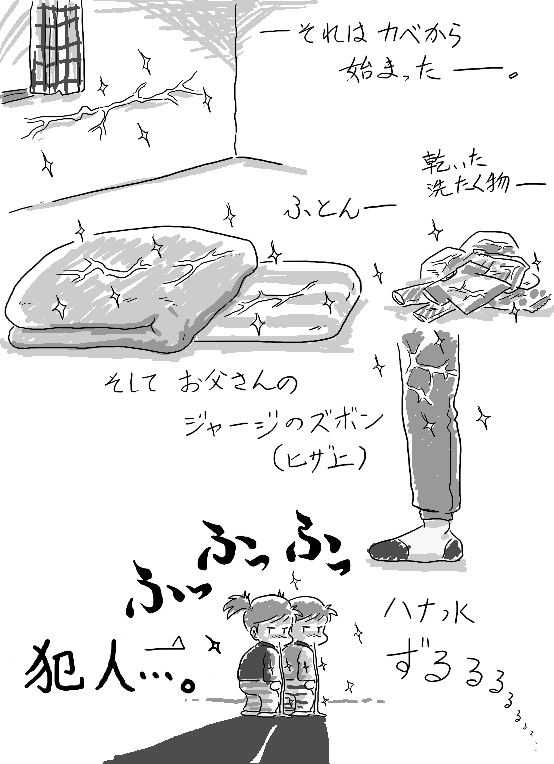 ―それはカベから
始まった―。
乾いた
洗たく物―
ふとん―
そして お父さんの
ジャージのズボン
(ヒザ上)
ふっ ふっ ふっ
犯人…。
ハナっ水
ずるるるるるる